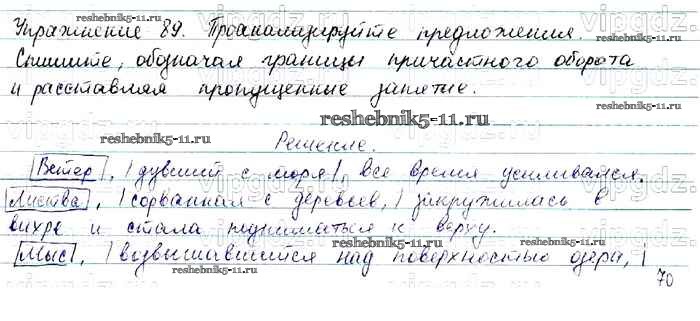 reshebnik5-11.ru
Упражнение 89. Проанализируйте предложения.
Спишите, обозначая границы причастного оборота
и расставляя пропущенные запятые.
reshebnik5-11.ru
reshebnik5-11.ru
Решение.
Ветер, | дувший с моря |, все время усиливался.
Листва, | сорванная с деревьев, | закружилась в
reshebnik5-11.ru
вихре и стала подниматься к верху.
reshebnik5-11.ru
Мыс, | возвышавшийся над поверхностью озера, |
reshebnik5-11.ru
70